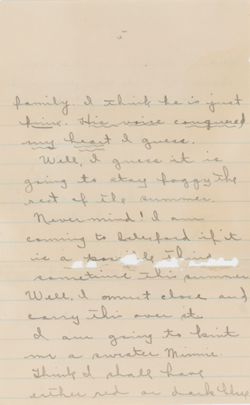 5
family. I think he is just
fine. His voice conquered
my heart I guess.
Well, I guess it is
going to stay foggy the
rest of the summer.
Never mind! I am
coming to Islesford if it
is a
sometime this summer
Well, I must close and
carry this over st
I am going to knit
me a sweater Minnie.
Think I shall have
either red or dark blue